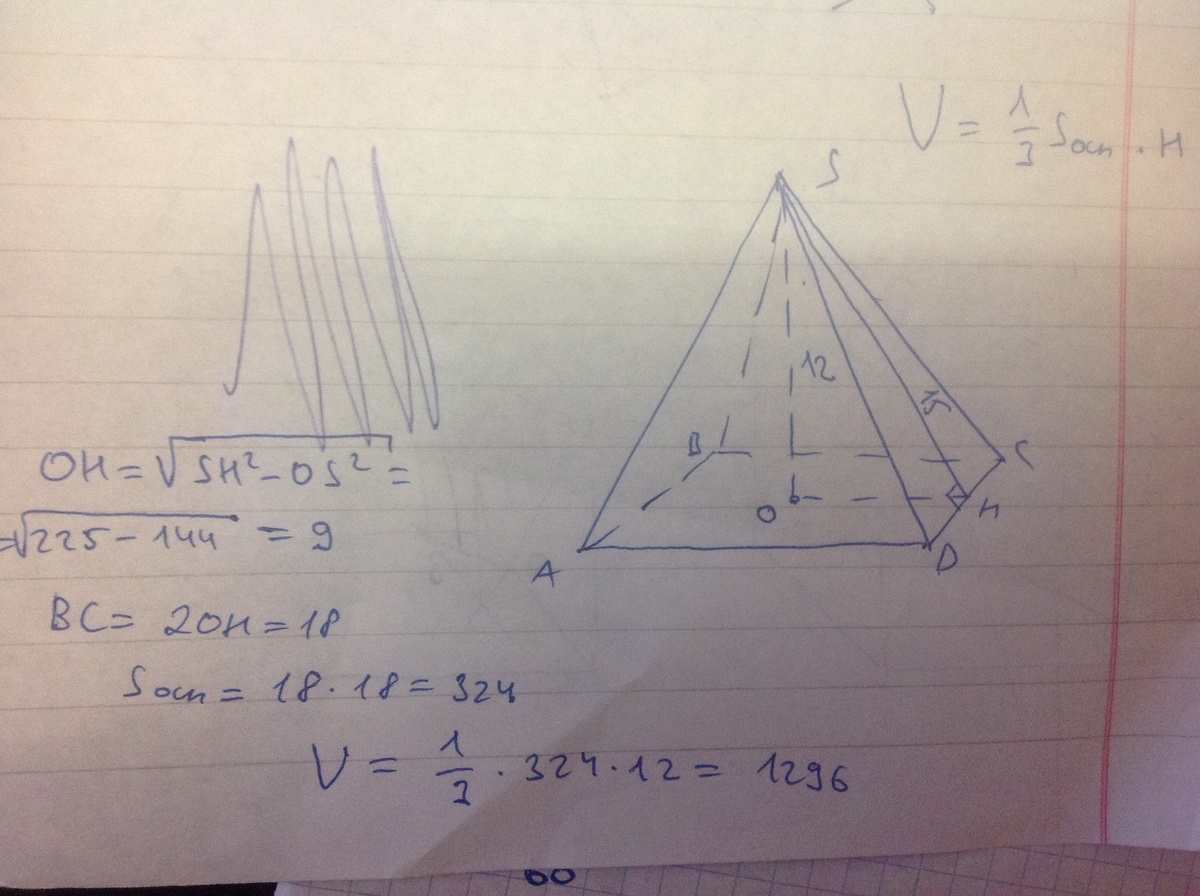 V = 1/3 Sосн · H
S
12
15
B
C
O
H
A
D
OH = √SH² - OS² =
= √225 - 144 = 9
BC = 2OH = 18
Sосн = 18 · 18 = 324
V = 1/3 · 324 · 12 = 1296
60